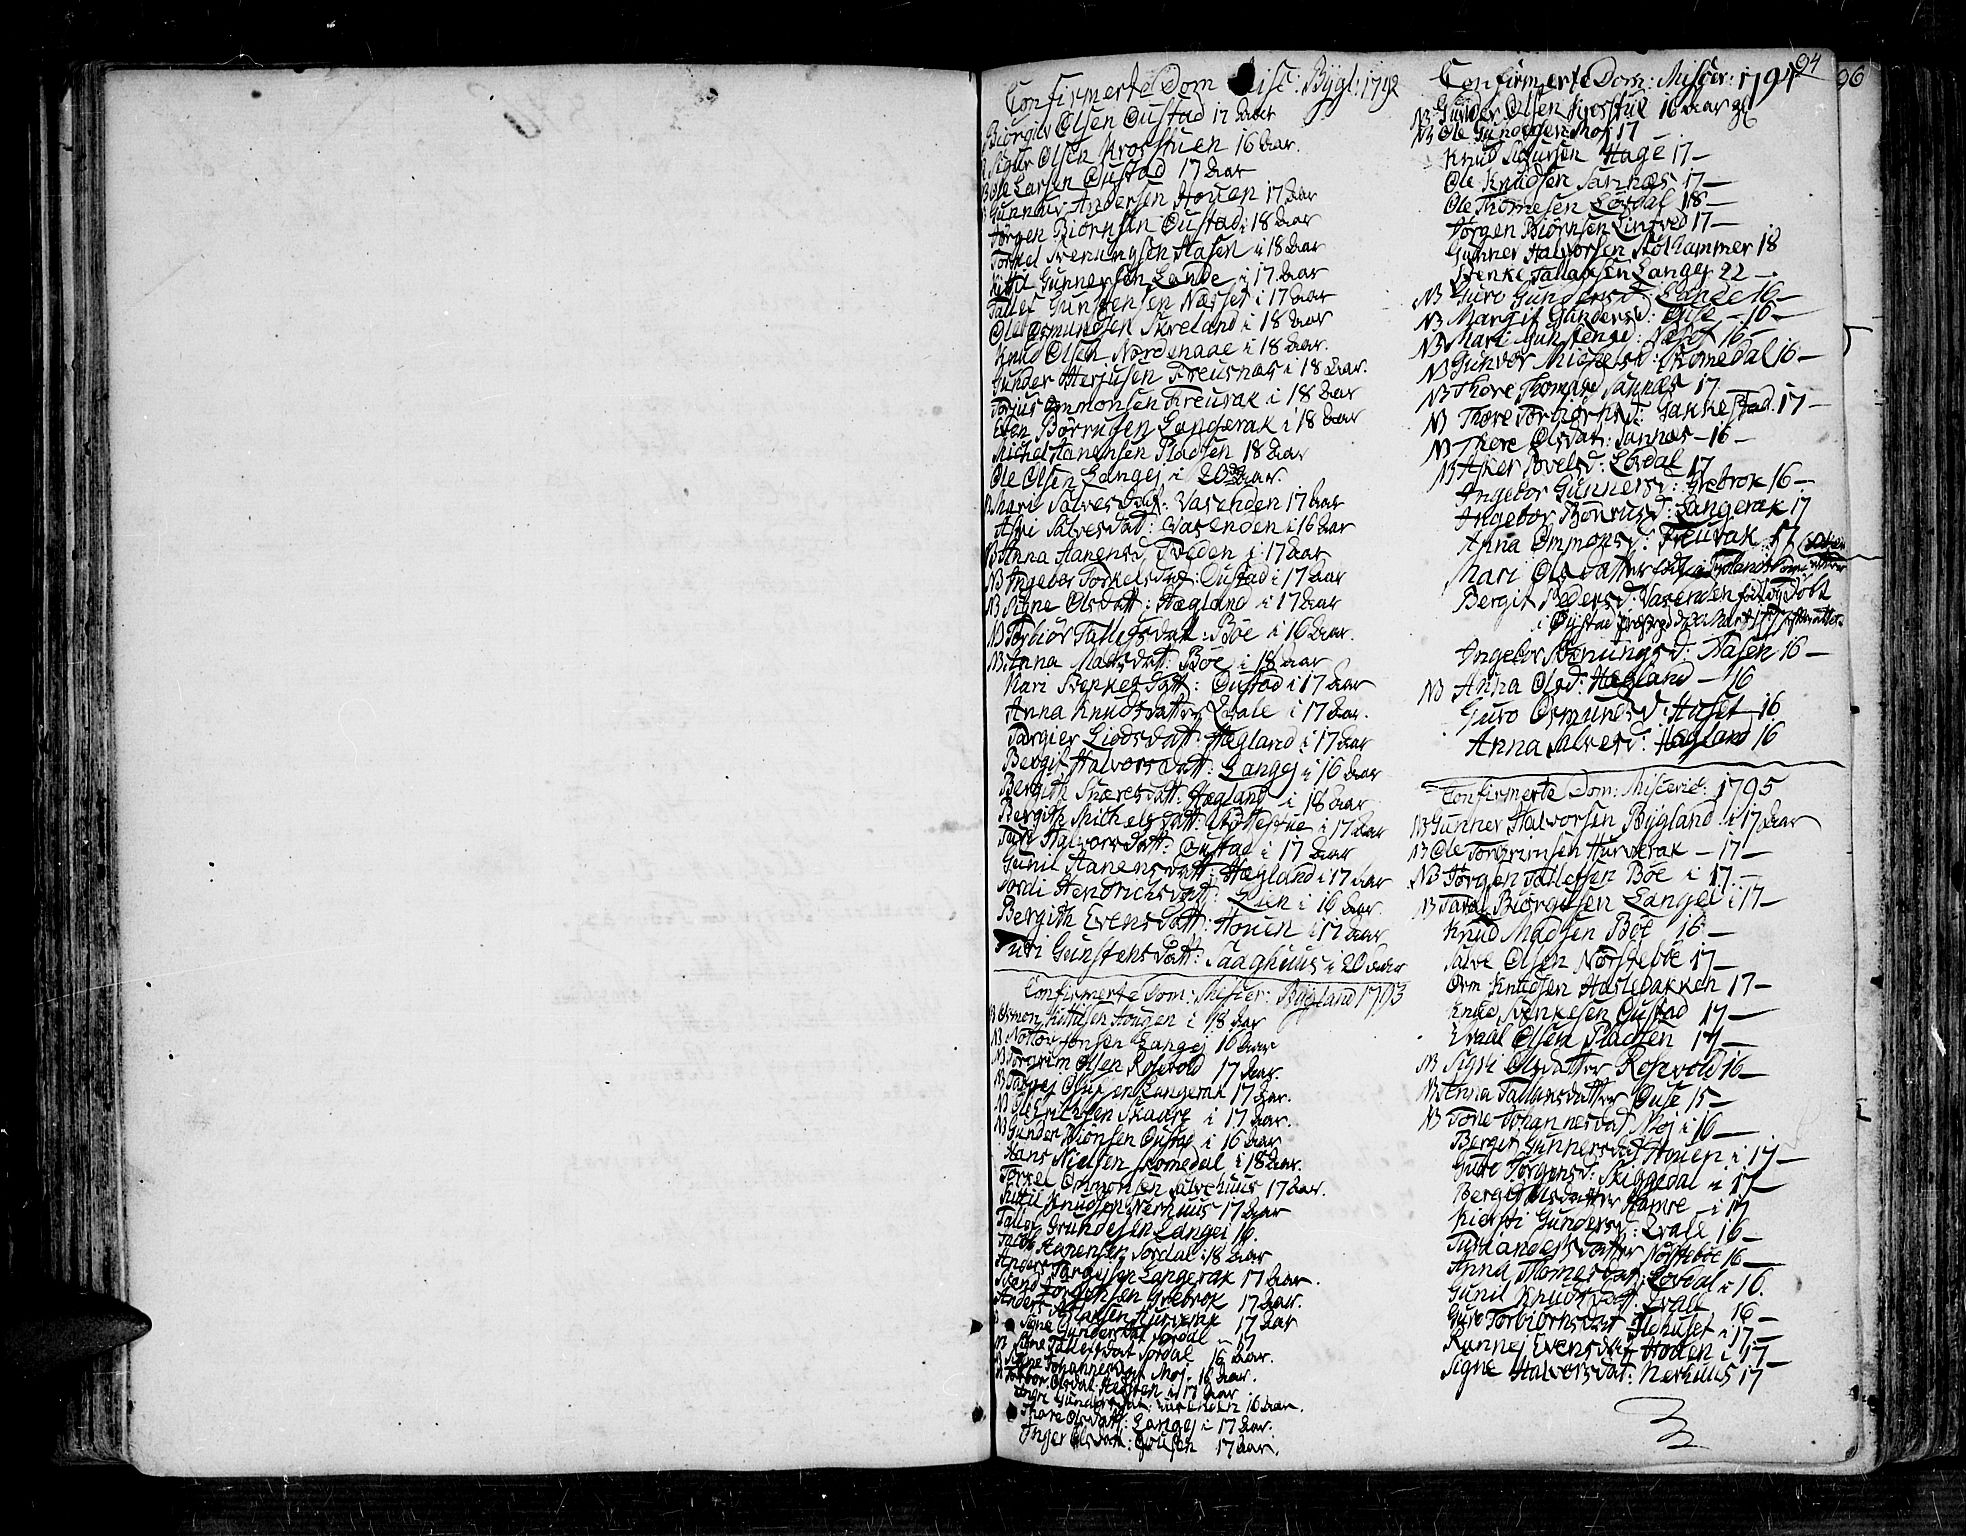 Confirmerte Dom: Bÿgl: 1792
Biørgilv Olsen Oustad 17 Aar
Sigur Olsen Krosstuen 16 Aar.
Ole Larsen Oustad 17 Aar
Gunnuv Andersen Houen 17 Aar
Jørgen Biørnsen Oustad i 18 Aar
Torkel Svenungsen Nasen i 18 Aar
Kittil Gunnersen Lande i 17 Aar
Tallef Gunstensen Næsset i 17 Aar
Ole Osmundsen Skreland i 18 Aar
Knud Olsen Nordenaae i 18 Aar.
Gunder Otterjusen Freusnæs i 18 Aar.
Torjus Ommonsen Freurak i 18 Aar
Even Børrusen Langerak i 18 Aar
Michel Aanensen Pladsen 18 Aar
Ole Olsen Langej i 20 Aar.
Mari Salvesdat: Vasenden 17 Aar
Asri Salvesdat: Vasenden i 16 Aar
NB Anna Aanensd. Tveden i 17 Aar
NB Ingebor Torkelsdat: Oustad i 17 Aar
NB Signe Olsdatt: Hægland i 17 Aar
NB Torbiør Tallefsdat: Bøe i 16 Aar.
NB Anna Madsdatt: Bøe i 18 Aar
Kari Svenkesdatt: Oustad i 17 Aar
Anna Knudsdatter Qvale i 17 Aar.
Targier Liodsdatt: Hægland i 17 Aar
Bergit Halvorsdatt: Langej i 16 Aar
Bergith Snaresdatt: Hægland i 18 Aar
Bergith Michelsdatt: i 17 Aar
Tari Halvorsdatt: Oustad i 17 Aar
Gunil Aanensdatt: Hægland i 17 Aar
Jordi Hendrichsdatt: Lien i 16 Aar.
Bergith Evensdatt: Houen i 17 Aar
Turi Gunstensdatt: Saaghuus i 20 Aar
Confirmerte Dom: Miser: Bÿgland 1793
Osmon Kittilsen Hougen i 18 Aar
NB Nottov Jonsen Langej 16 Aar
NB Torgrim Olsen Rosevold 17 Aar.
NB Targej Olufsen Langerak 17 Aar.
NB Ole Skaare i 17 Aar.
NB Gunder Biønsen Oustad i 16 Aar
Hans Nielsen Skomedal i 18 Aar.
Torkel Ommonsen Salvehuus 17 Aar.
Kittil Knudsen Nærhuus 17 Aar
Tallov Grundesen Langei 16.
Jacob Aanensen Jordal 18 Aar
Anders Targejsen Langerak 17 Aar.
Svend Jørgensen Grebrok 17 Aar.
Anders Hurverak 17 Aar
Signe Gundersdat Jordal 17
NB Signe Tallefsdat Jordal 16 Aar.
NB Signe Johannesdat Moj. 16 Aar.
Torbor Olsdat i 17 Aar
Ingri Gundersdat: Vasenden 16 Aar.
Thore Olsdatt: Langej i 17 Aar.
Inger Olsdatt: 17 Aar.
94
96
Confirmerte Dom: Miser: 1794
NB Gunder Olsen Krosstue 16 Aar gl
NB Ole Gundersen Moj 17
Knud Sigursen Hage 17 —
Ole Knudsen Sannæs 17 —
Ole Thomesen Løvdal 18 —
Jørgen Biørnsen Lindtved 17 —
Gunner Halvorsen Støl hammer 18
Svenke Tallaksen Langej 22 —
NB Guro Gundersd: Lande 16 —
NB Margit Gundersd: Guse — 16 —
NB Mari Gunstensd: Næset 16 —
NB Gunvor Michelsd: Skomedal 16 —
NB Thore Thomesd Sannæs 17
NB Thore Torbiørnsd: Jakkestad. 17 —
NB Thore Olsdat: Sannæs — 16 —
NB Asker Povelsd: Løvdal 17
Ingebor Gunnersd: Grebrok 16 —
Ingebor Børrusd: Langerak 17
Anna Ommonsd: Freurak 17
Mari Olsdatter
Bergit Pedersd: Vasenden fød og Døbt
i Øÿstad
Ingebor Svenungsd: Nasen 16 —
NB Anna Olsd: Hægland — 16
Guro Osmundsd: Huset 16
Anna Salvesd: Hægland 16
Confirmerte Dom: Miseric: 1795
NB Gunner Halvorsen Bÿgland i 17 Aar
NB Ole Torgrimsen Hurverak — 17 —
NB Jørgen Tallefsen Bøe i 17 —
NB Taral Biørgufsen Langei i 17 —
Knud Madsen Bøe 16 —
Salve Olsen Nørstebøe 17 —
Orm Knudsen Haslebakken 17 —
Knud Svenkesen Oustad 17 —
Eivul Olsen Pladsen 17 —
NB Sigri Olsdatter Rosevold 16 —
NB Anna Tallaksdatter Guse 15 —
NB Tone Johannesdat Moj i 16 —
Bergit Gunnersdat Houen i 17 —
Guro Jørgensd: Skiggedal i 17 —
Bergit Olsdatter Hamre i 17
Kiersti Gundersd: Qvale 16 —
Turi Andersdatter Nørstebøe 16 —
Anna Thomesdat: Løvdal i 16.
Gunil Knudsdatt: Qvale 16 —
Guro Torbiørnsdat i 17 —
Rannej Evensdat Houen i 17 —
Signe Halvorsdat: Nerhuus 17